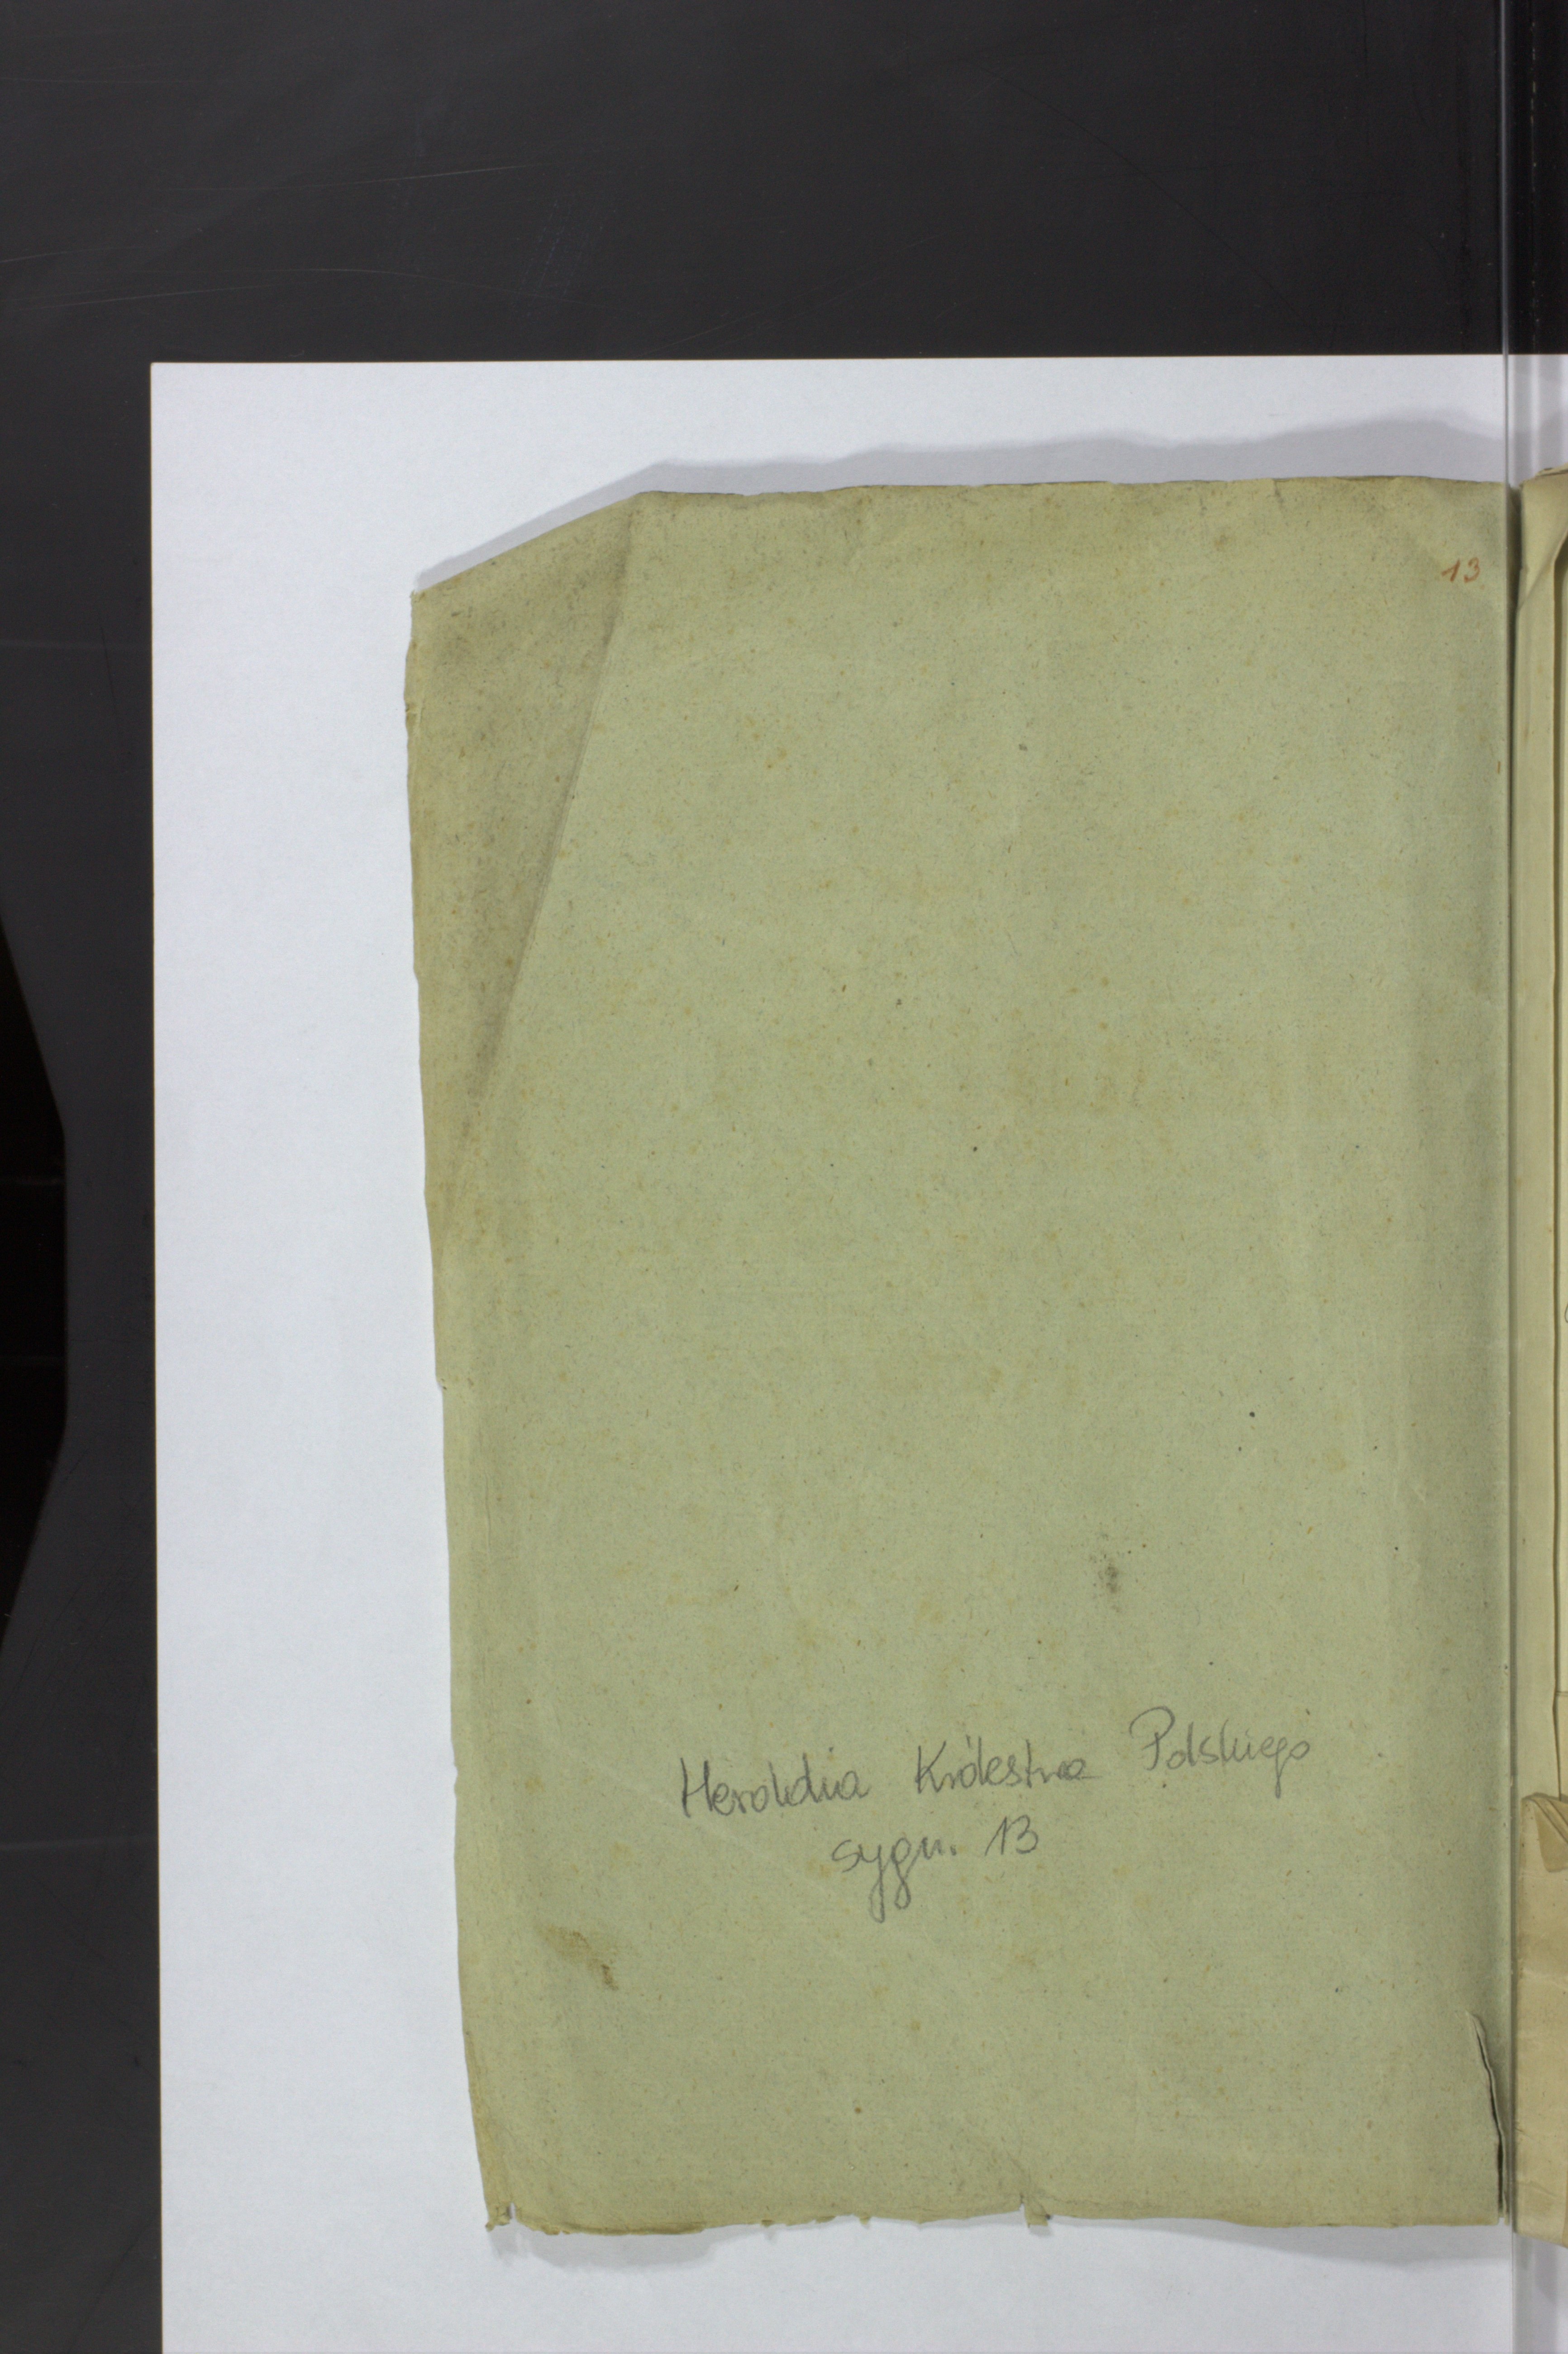 13
Heroldia Królestwa Polskiego
sygn. 13